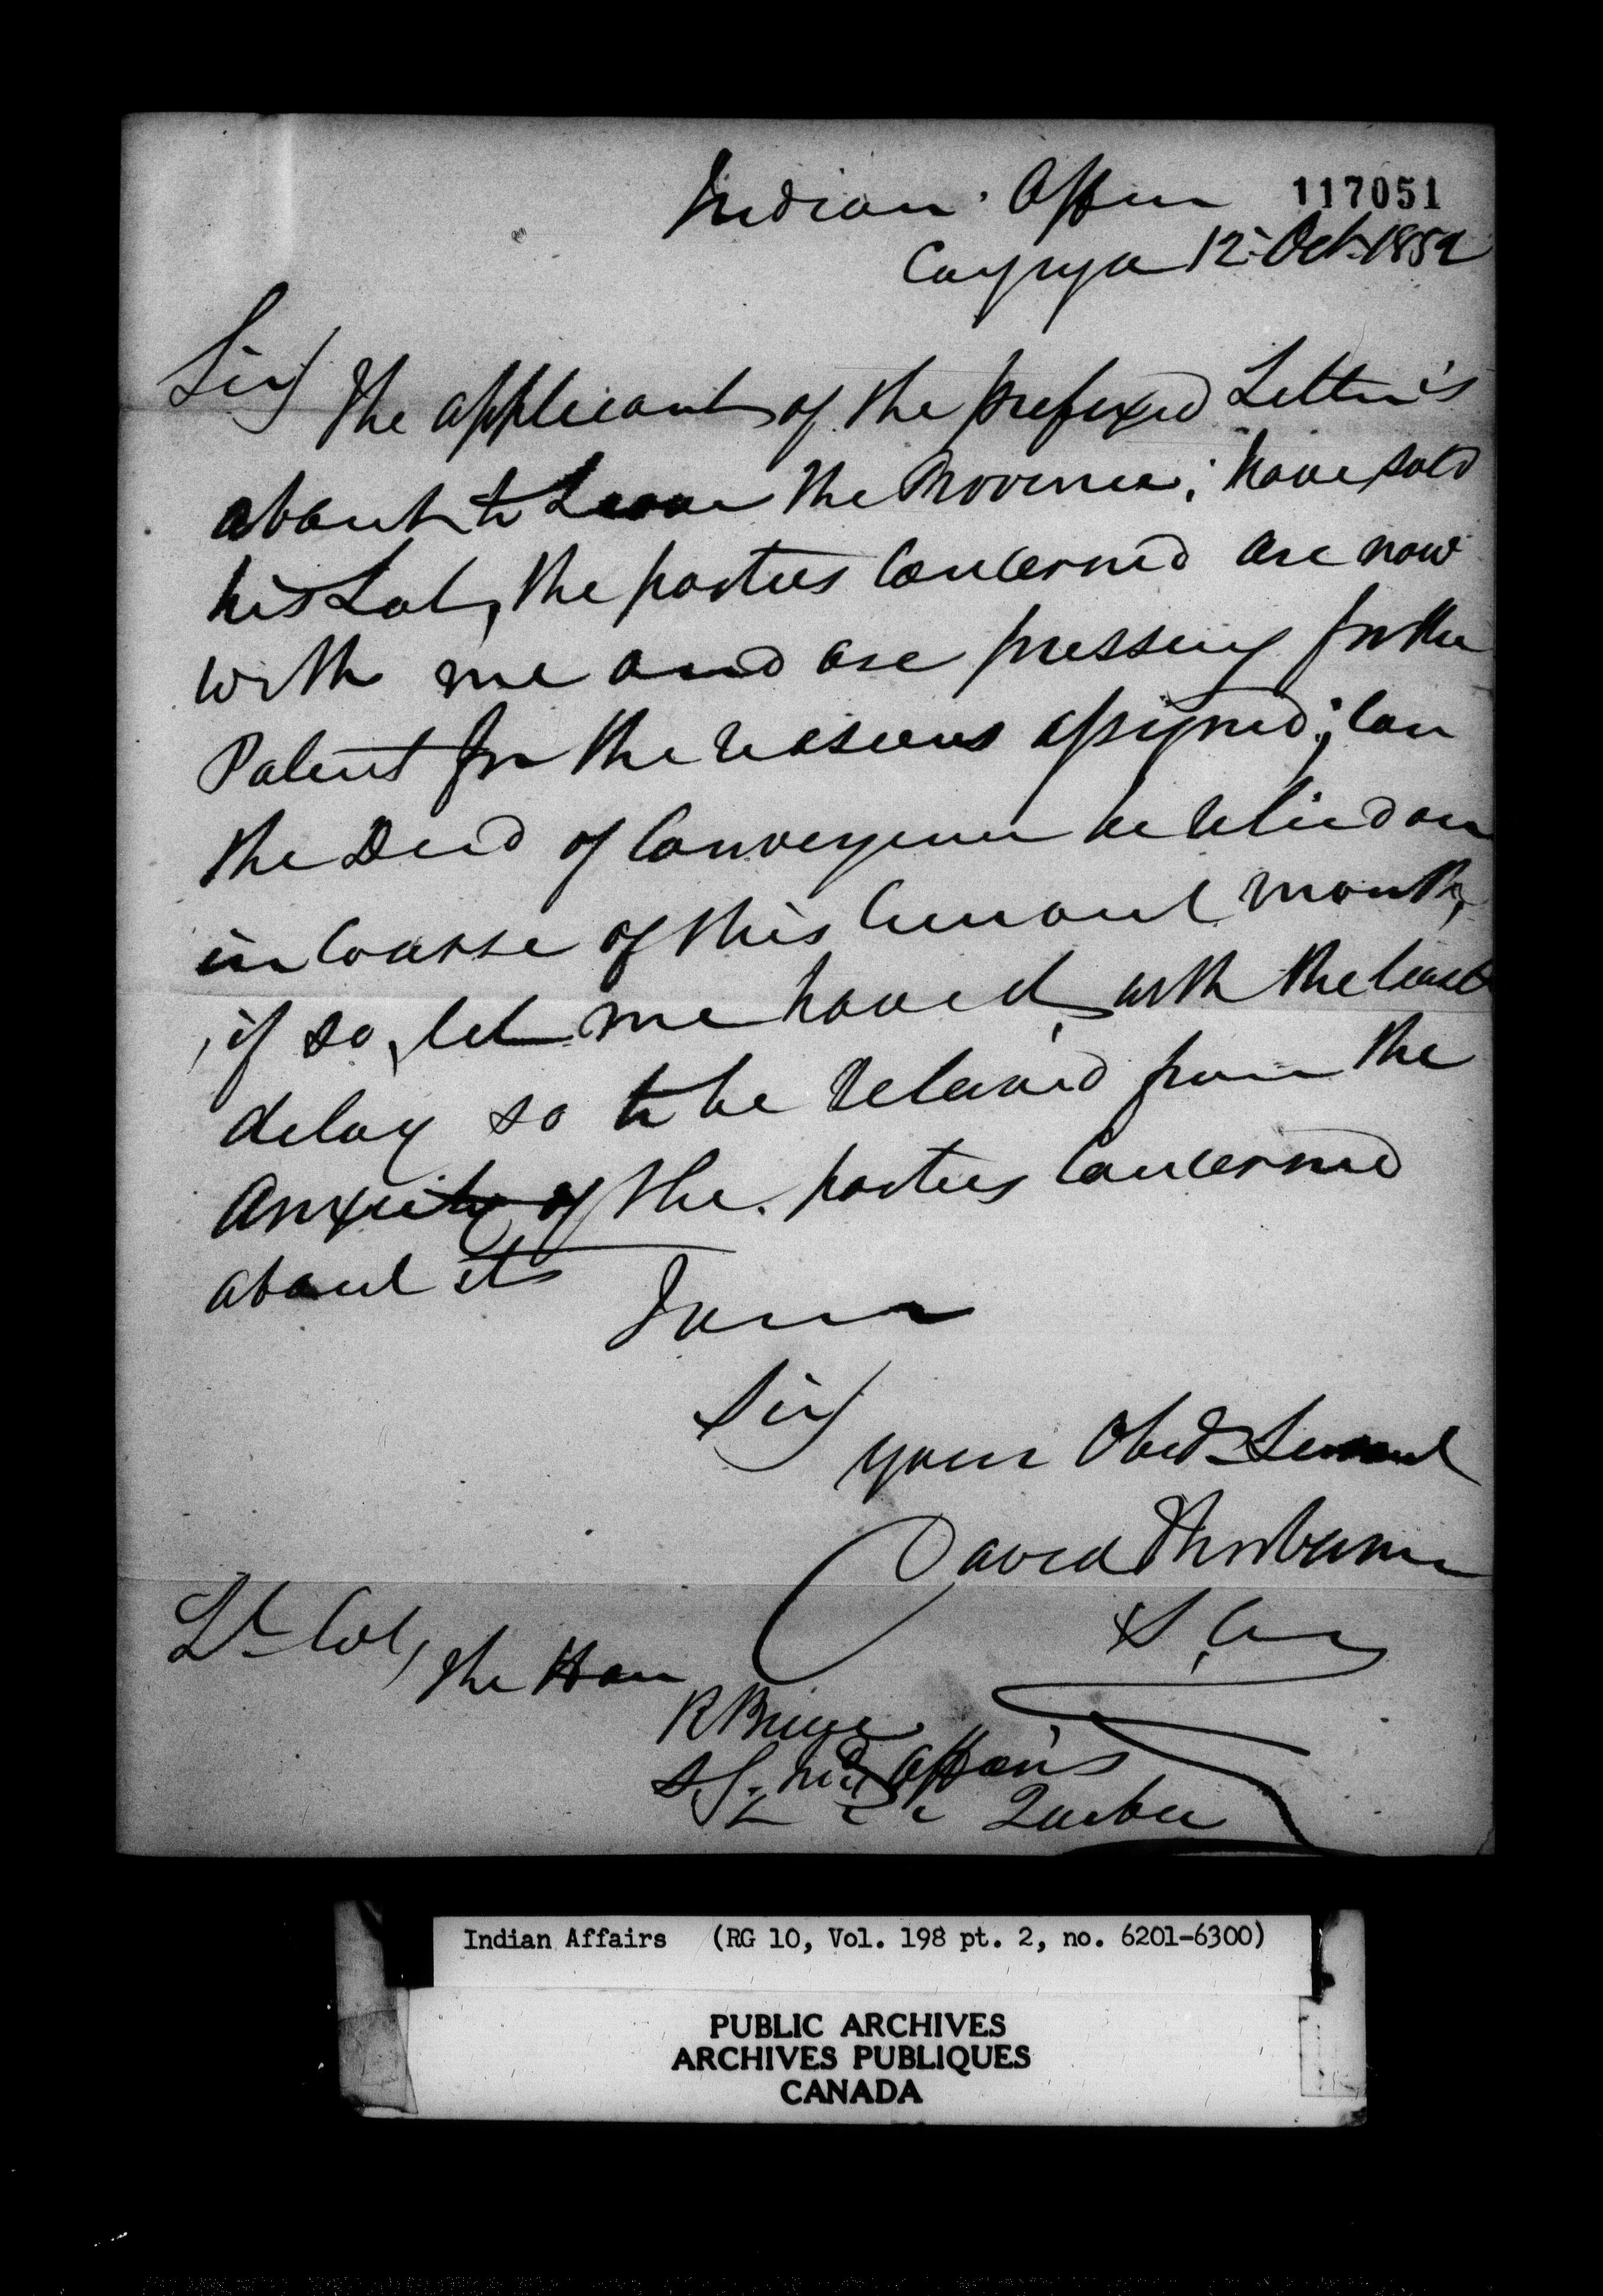 Indian Office
117051
Cayuga 12 Oct. 1852
Sir,
The applicant of the prefixed Letter is
about to Leave the Province; have sold
his Lot, the parties Concerned are now
with me and are pressing for the
Patent for the reasons assigned; Can
the Deed of Conveyance be relied on
in Course of this Current month,
if so, let me have it, with the least
delay so to be relieved from the
Anxiety of the parties Concerned
about it
I am
Sir
your Obed. Servant
David Thorburn
Lt Col, the Hon
R Bruce
S.G. Ind Affairs
Quebec
Indian Affairs (RG 10, Vol. 198 pt. 2, no. 6201-6300)
PUBLIC ARCHIVES
ARCHIVES PUBLIQUES
CANADA